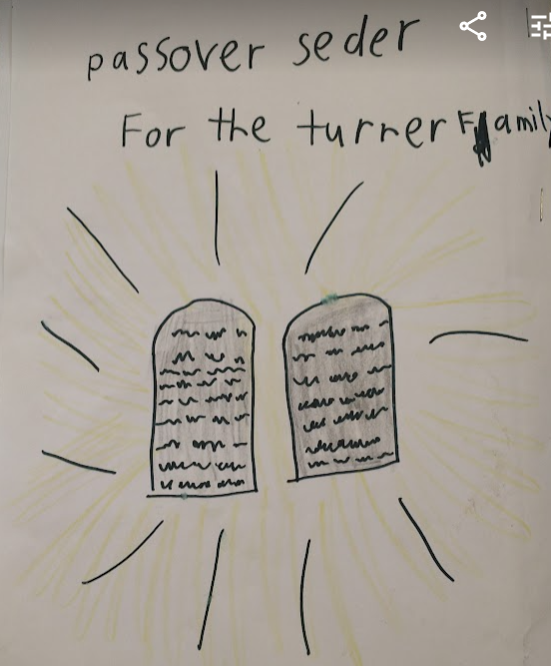 passover seder
For the turner Family